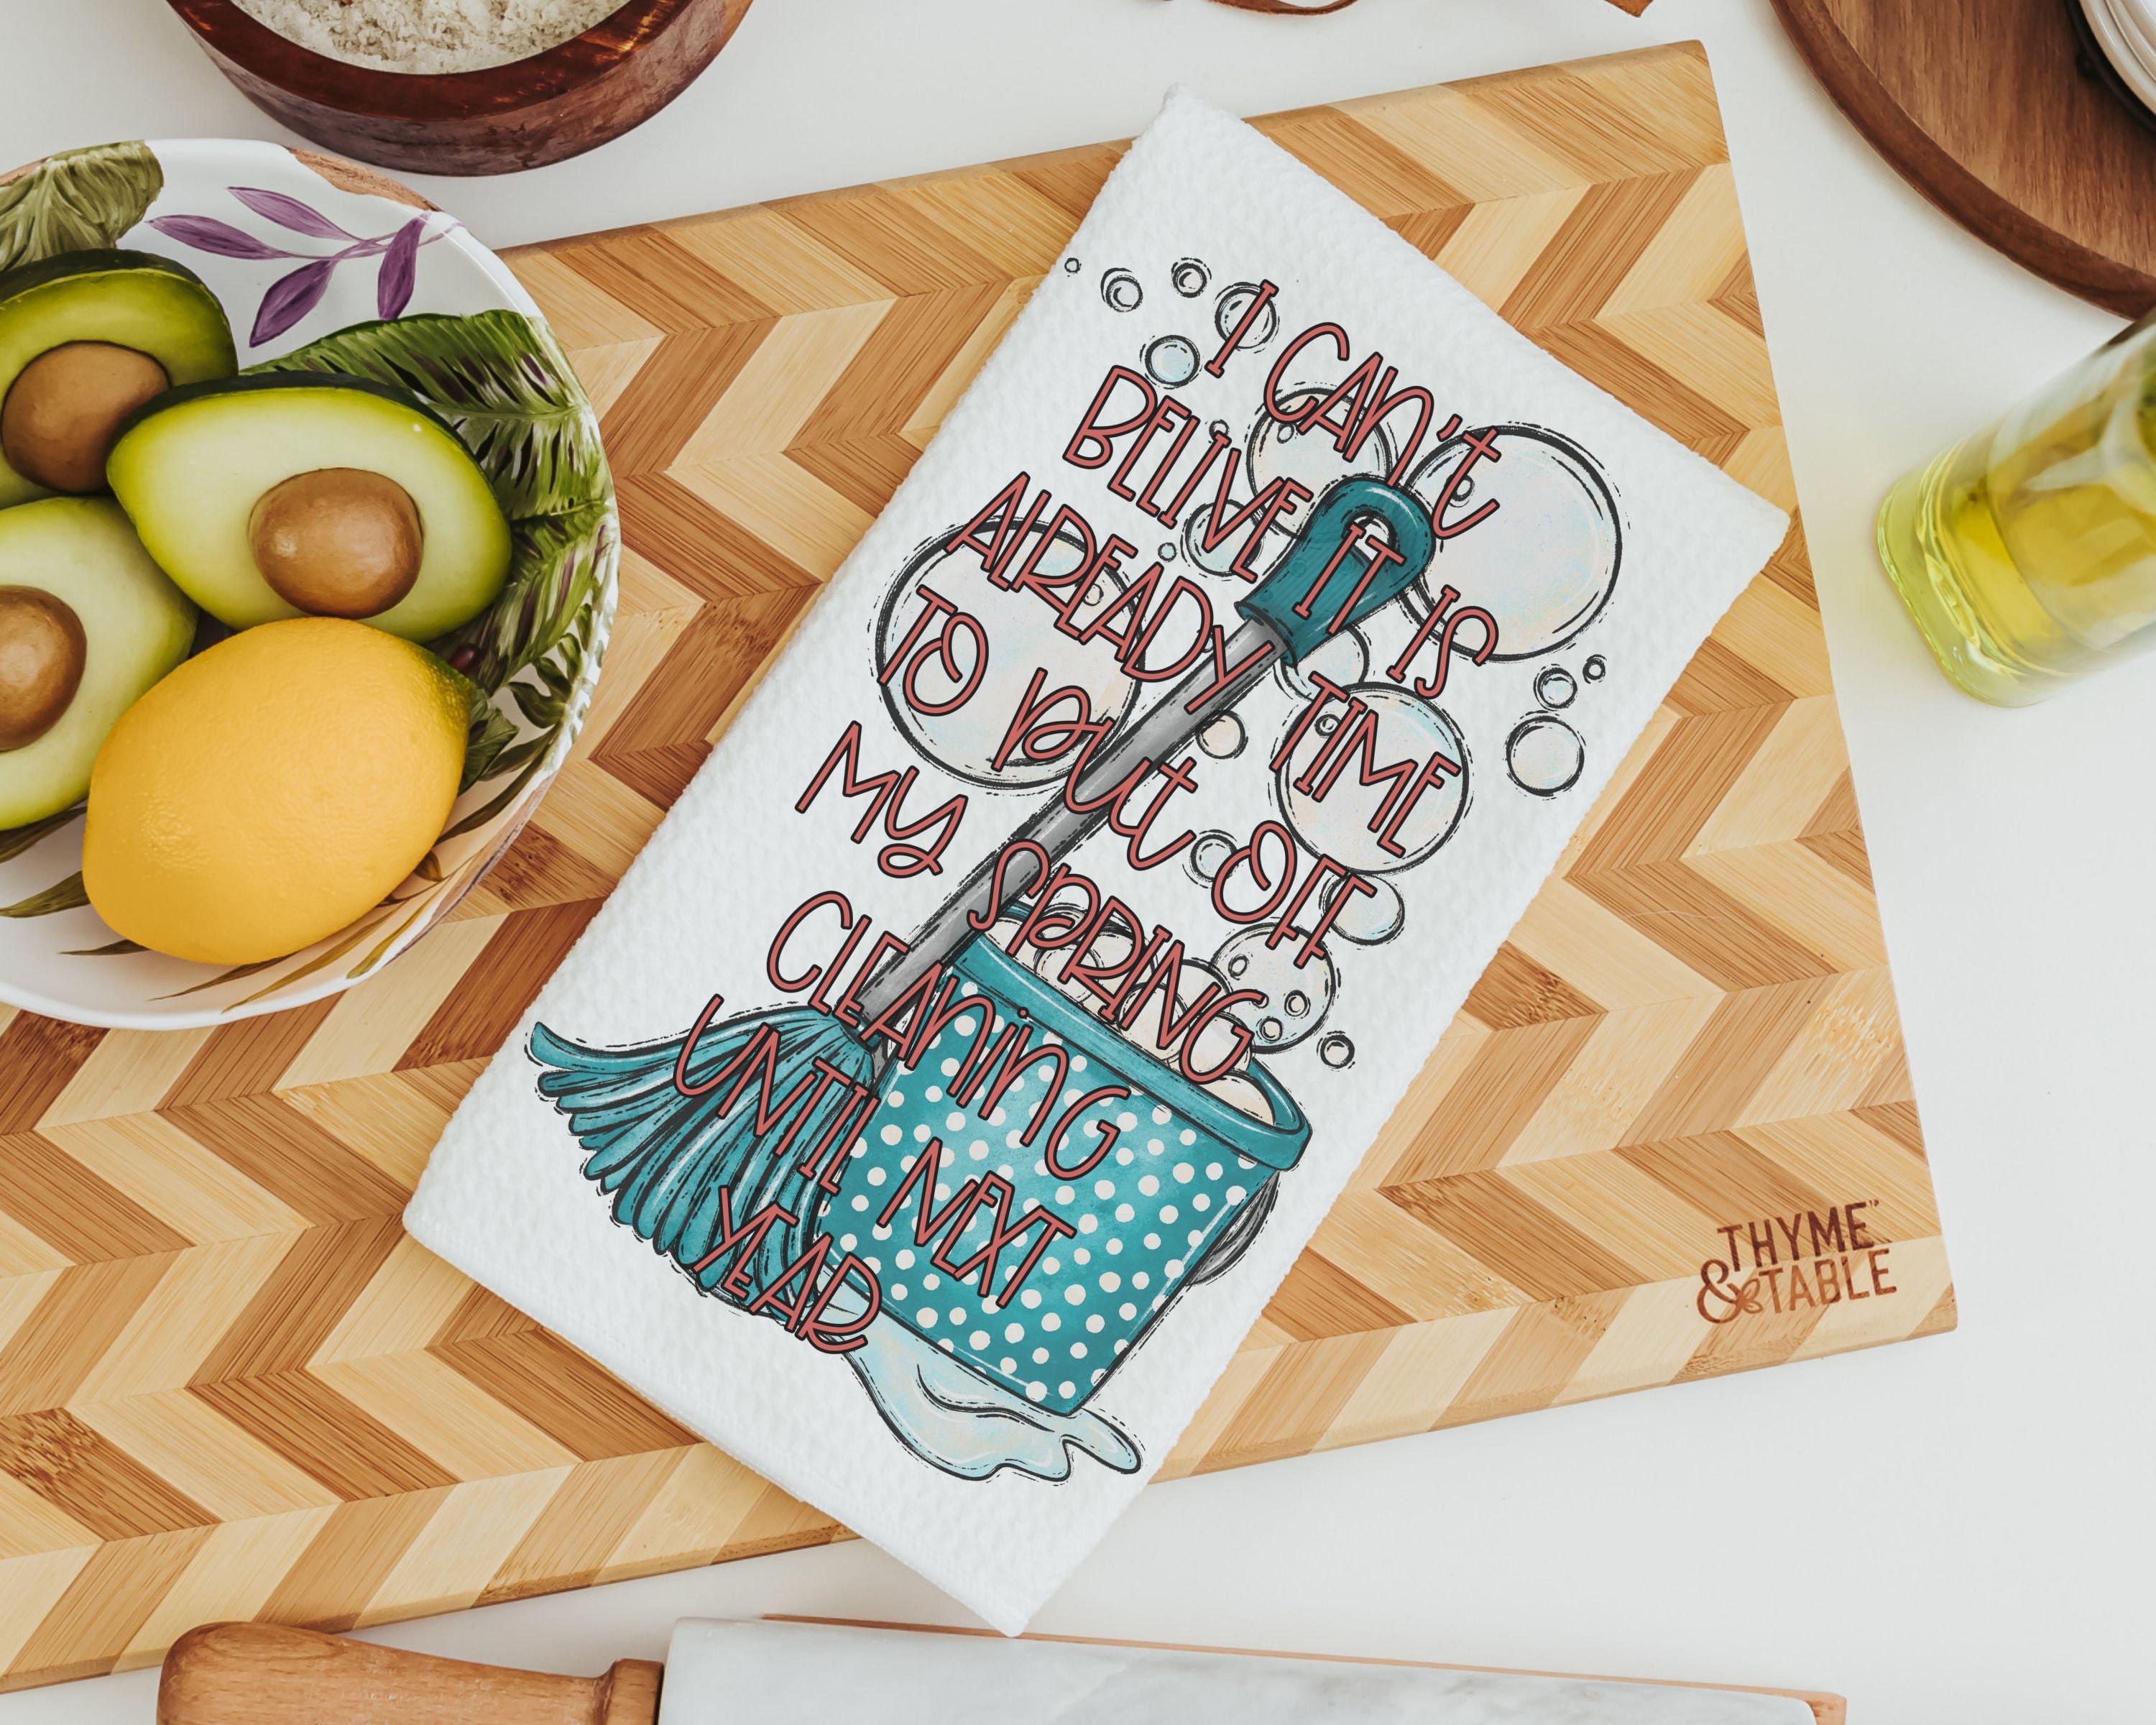 I CAn't
BELIVE IT IS
AlREADY TIME
TO put OFF
My SPRING
CLEAninG
UNTIL NEXT
YEAR
THYME™
& TABLE